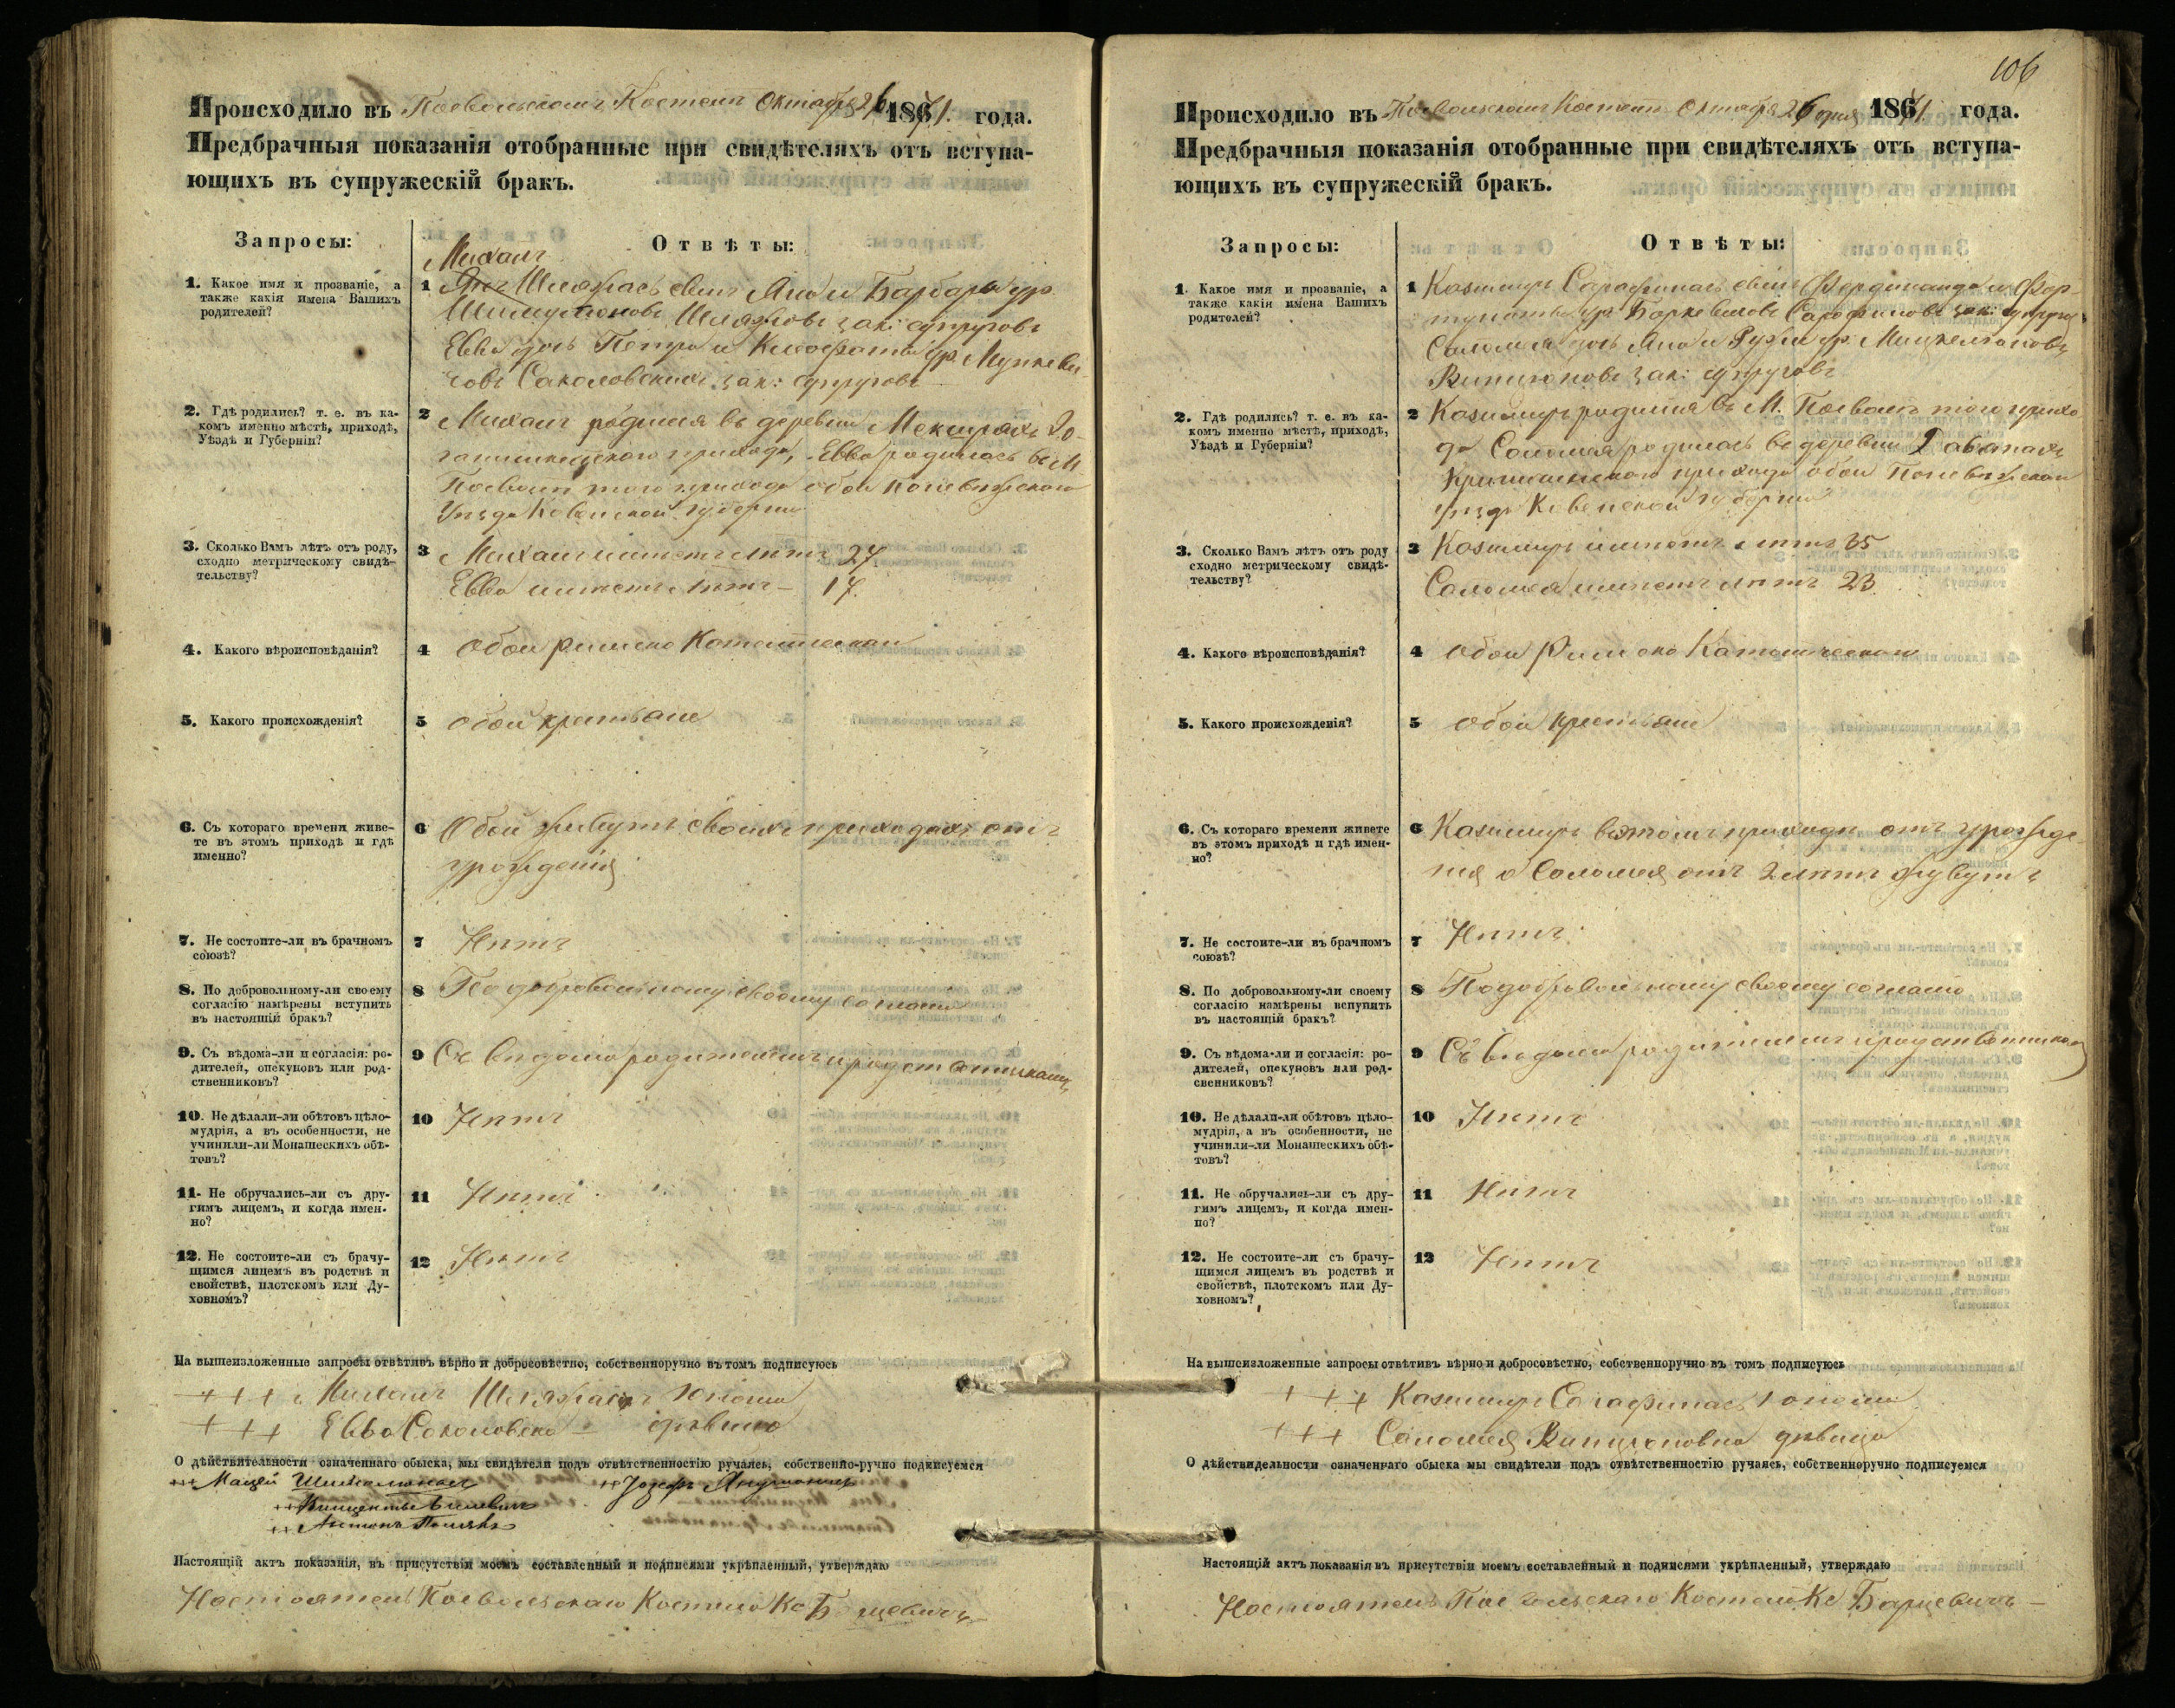 106
Происходило въ Поевольскомъ Костелѣ Октября 26 1871. года.
Предбрачныя показанія отобранные при свидѣтеляхъ отъ вступа-
ющихъ въ супружескій бракъ.
Запросы:
Отвѣты:
1. Какое имя и прозваніе, а
также какія имена Вашихъ
родителей?
Михаилъ
1 Шляжасъ сынъ Яна и Барбары ур.
Шляжовъ зак: супруговъ
Евва дочь Петра и
Саколовскихъ зак: супруговъ
2. Гдѣ родились? т. е. въ ка-
комъ именно мѣстѣ, приходѣ,
Уѣздѣ и Губерніи?
2 Михаилъ родился въ деревни
прихода, Евва родилась въ М
Поеволи того прихода обои Поневѣжскаго
Уѣзда Ковенской губерніи
3. Сколько Вамъ лѣтъ отъ роду,
сходно метрическому свидѣ-
тельству?
3 Михаилъ имѣетъ лѣтъ 27.
Евва имѣетъ лѣтъ - 17.
4. Какого вѣроисповѣданія?
4 Обои римско Католическаго
5. Какого происхожденія?
5 Обои крестьяне
6. Съ котораго времени живе-
те въ этомъ приходѣ и гдѣ
именно?
6 Обои живутъ своихъ приходахъ отъ
урожденія
7. Не состоите-ли въ брачномъ
союзѣ?
7 Нѣтъ
8. По добровольному-ли своему
согласію намѣрены вступить
въ настоящій бракъ?
8 По добровольному своему согласію
9. Съ вѣдома-ли и согласія: ро-
дителей, опекуновъ или род-
ственниковъ?
9 Съ вѣдома родителей и родственниковъ
10. Не дѣлали-ли обѣтовъ цѣло-
мудрія, а въ особенности, не
учинили-ли Монашескихъ обѣ-
товъ?
10 Нѣтъ
11. Не обручались-ли съ дру-
гимъ лицемъ, и когда имен-
но?
11 Нѣтъ
12. Не состоите-ли съ брачу-
щимся лицемъ въ родствѣ и
свойствѣ, плотскомъ или Ду-
ховномъ?
12 Нѣтъ
На вышеизложенные запросы отвѣтивъ вѣрно и добросовѣстно, собственноручно въ томъ подписуюсь
+++ Михаилъ Шляжасъ юноша
+++ Евва Соколовска - дѣвица
О дѣйствительности означеннаго обыска, мы свидѣтели подъ отвѣтственностію ручаясь, собственно-ручно подписуемся
+++ Мацей
++ Юзефъ
+++ Винценты
+++ Антонъ
Настоящій актъ показанія, въ присутствіи моемъ составленный и подписями укрѣпленный, утверждаю
Настоятель Поевольскаго Костела Кс Барцевичъ
Происходило въ Поевольскомъ Костелѣ Октября 26 дня 1871. года.
Предбрачныя показанія отобранные при свидѣтеляхъ отъ вступа-
ющихъ въ супружескій бракъ.
Запросы:
Отвѣты:
1. Какое имя и прозваніе, а
также какія имена Вашихъ
родителей?
1 Казимиръ Сарафинасъ сынъ Фердинанда и Фор-
тунаты ур Баркевичовъ Сарафиновъ зак: супруг.
Саломея дочь Яна и
зак: супруговъ
2. Гдѣ родились? т. е. въ ка-
комъ именно мѣстѣ, приходѣ,
Уѣздѣ и Губерніи?
2 Казимиръ родился въ М. Поеволи того прихо
да Саломея родилась въ деревни
прихода обои Поневѣжскаго
уѣзда Ковенской губерніи
3. Сколько Вамъ лѣтъ отъ роду
сходно метрическому свидѣ-
тельству?
3 Казимиръ имѣетъ лѣтъ 35
Саломея имѣетъ лѣтъ 23
4. Какого вѣроисповѣданія?
4 Обои Римско Католическаго
5. Какого происхожденія?
5 Обои крестьяне
6. Съ котораго времени живете
въ этомъ приходѣ и гдѣ имен-
но?
6 Казимиръ въ этомъ приходѣ отъ урожде
нія а Саломея отъ 2 лѣтъ живутъ
7. Не состоите-ли въ брачномъ
союзѣ?
7 Нѣтъ
8. По добровольному-ли своему
согласію намѣрены вспупить
въ настоящій бракъ?
8 По добровольному своему согласію
9. Съ вѣдома-ли и согласія: ро-
дителей, опекуновъ или род-
свенниковъ?
9 Съ вѣдома родителей и родственниковъ
10. Не дѣлали-ли обѣтовъ цѣло-
мудрія, а въ особенности, не
учинили-ли Монашескихъ обѣ-
товъ?
10 Нѣтъ
11. Не обручались-ли съ дру-
гимъ лицемъ, и когда имен-
но?
11 Нѣтъ
12. Не состоите-ли съ брачу-
щимся лицемъ въ родствѣ и
свойствѣ, плотскомъ или Ду-
ховномъ?
12 Нѣтъ
На вышеизложенные запросы отвѣтивъ вѣрно и добросовѣстно, собственноручно въ томъ подписуюсь
+++ Казимиръ Сарафинасъ юноша
+++ Саломея дѣвица
О дѣйствидельности означеннаго обыска мы свидѣтели подъ отвѣтственностію ручаясь, собственноручно подписуемся
Настоящій актъ показанія въ присутствіи моемъ составленный и подписями укрѣпленный, утверждаю
Настоятель Поевольскаго Костела Кс Барцевичъ